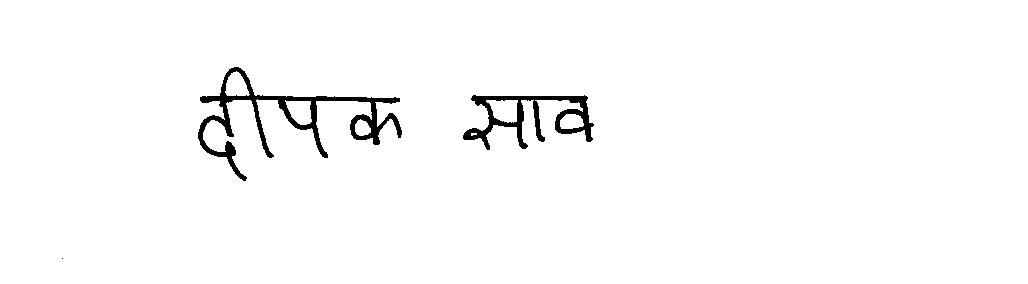 दीपक साव